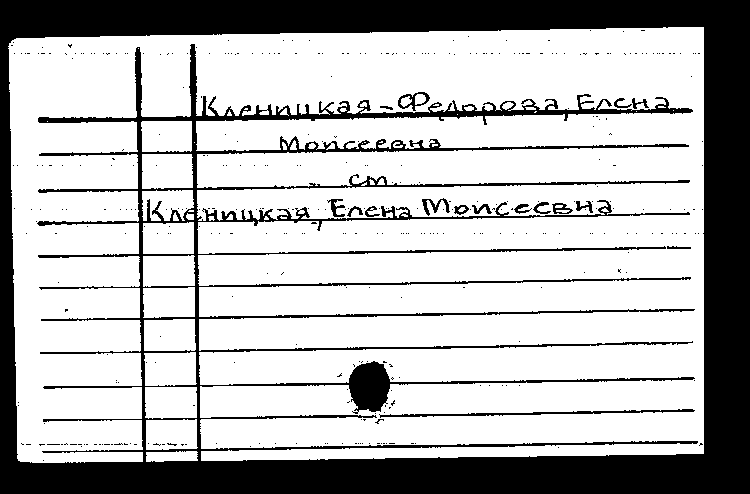 Кленицкая-Федорова, Елена
Моисеевна
см.
Кленицкая, Елена Моисеевна